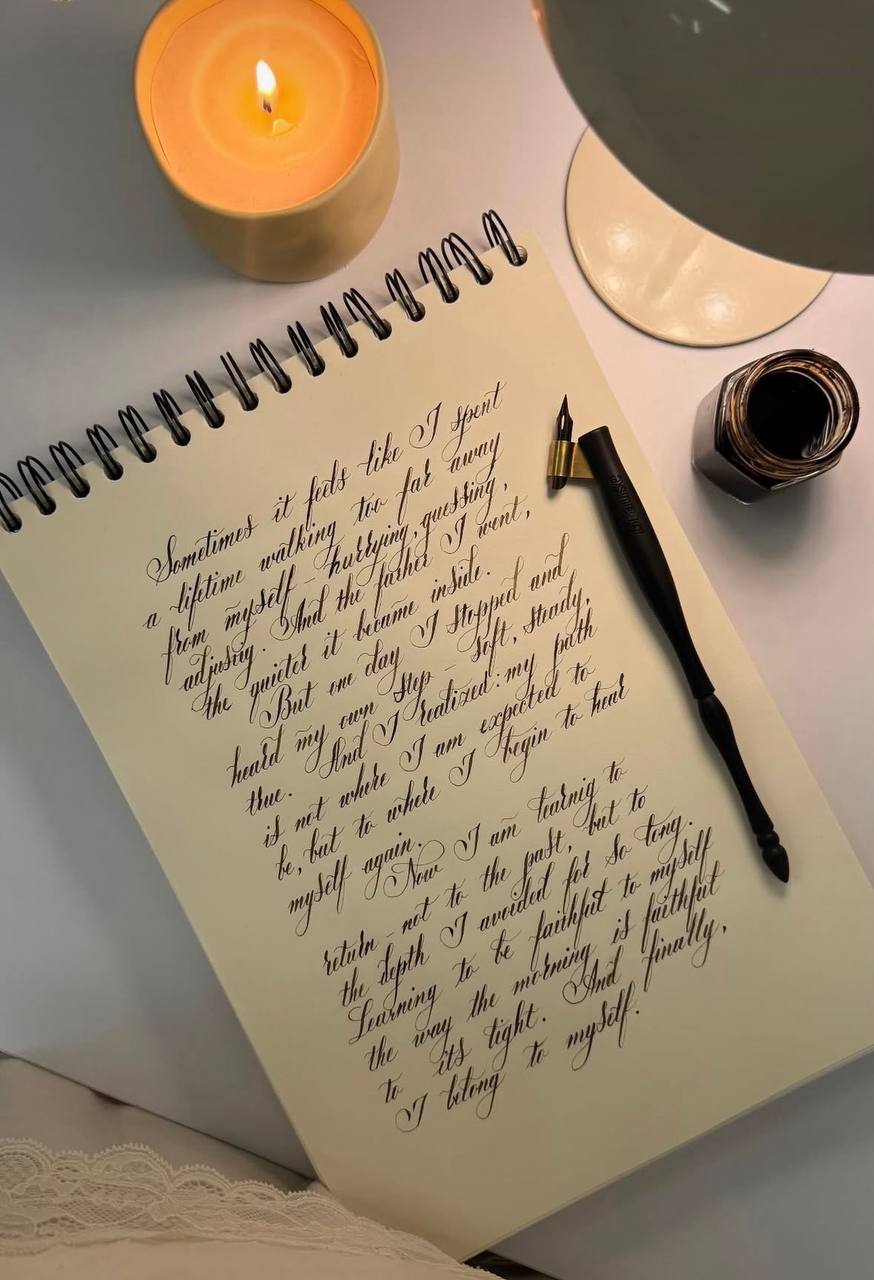 Sometimes it feels like I spent
a lifetime walking too far away
from myself – hurrying, guessing,
adjusing. And the farher I went,
the quieter it became inside.
But one day I stopped and
heard my own step – soft, steady,
true. And I realized: my path
is not where I am expected to
be, but to where I begin to hear
myself again.
Now I am learnig to
return – not to the past, but to
the depth I avoided for so long.
Learning to be faithful to myself
the way the morning is faithful
to its light. And finally,
I belong to myself.